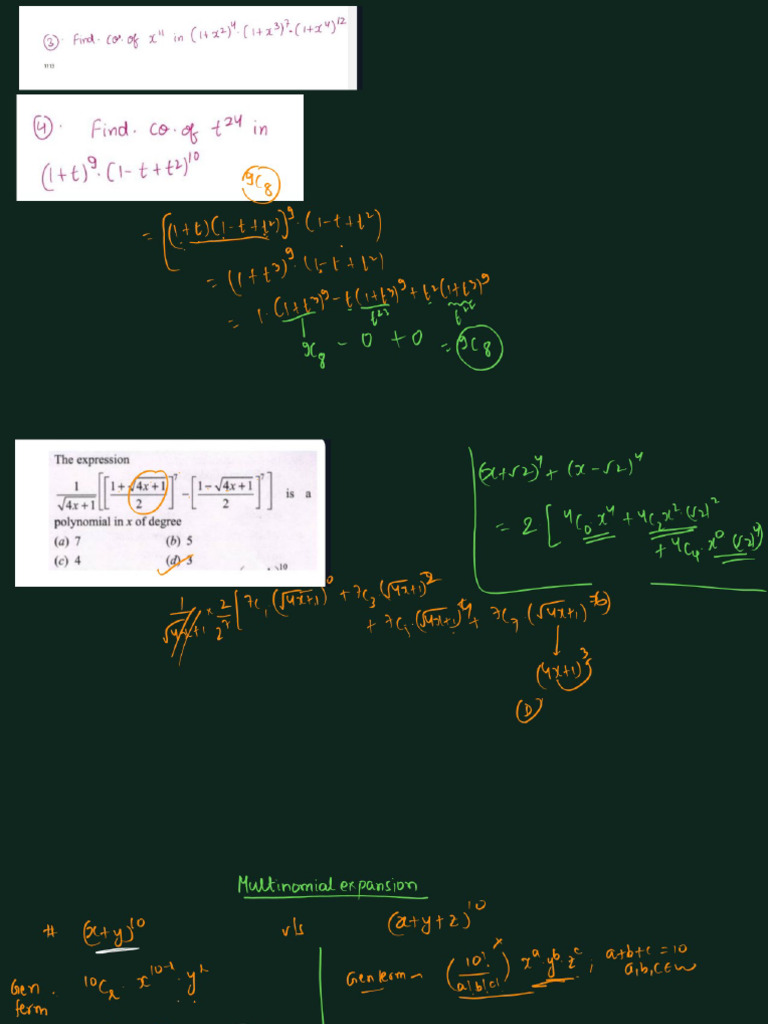 ③. Find. co. of x¹¹ in (1+x²)⁴·(1+x³)⁷·(1+x⁴)¹²
④. Find. co. of t²⁴ in
(1+t)⁹·(1-t+t²)¹⁰
⁹C₈
= [(1+t)(1-t+t²)]⁹·(1-t+t²)
= (1+t³)⁹·(1-t+t²)
= 1·(1+t³)⁹ - t(1+t³)⁹ + t²(1+t³)⁹
t²³ t²²
⁹C₈ - 0 + 0 = ⁹C₈
The expression
1/√4x+1 [[1+√4x+1/2]⁷ - [1-√4x+1/2]⁷] is a
polynomial in x of degree
(a) 7 (b) 5
(c) 4 (d) 3
(x+√2)⁴ + (x-√2)⁴
= 2[⁴C₀x⁴ + ⁴C₂x²·(√2)²
+ ⁴C₄·x⁰(√2)⁴
1/√4x+1 × 2/2⁷ [⁷C₁(√4x+1)⁰ + ⁷C₃(√4x+1)²
+ ⁷C₅·(√4x+1)⁴ + ⁷C₇(√4x+1)⁶)
(4x+1)³
(D)
Multinomial expansion
# (x+y)¹⁰ v/s (x+y+z)¹⁰
Gen. term ¹⁰Cᵣ·x¹⁰⁻ʳ·yʳ
Gen term - (10!/a!b!c!) xᵃ·yᵇ·zᶜ; a+b+c=10
a,b,c∈w